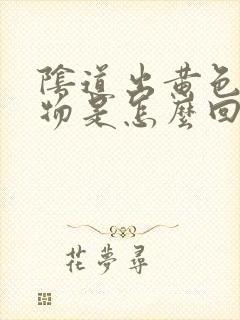 陰道出黄色
物是怎麼回
花夢尋